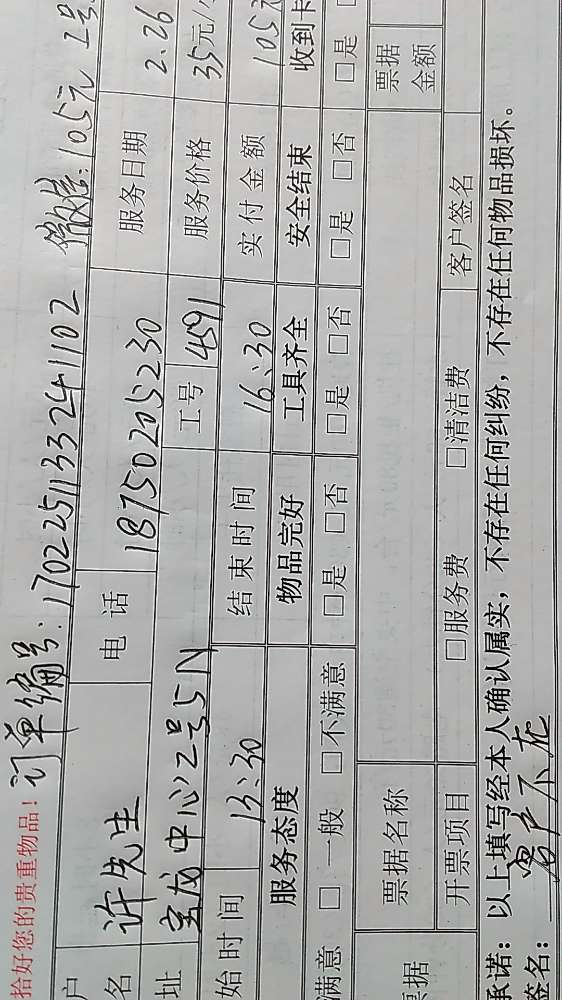 拾好您的贵重物品！ 订单编号：170225113324102 微信：105元 2号
户名 许先生 电话 18750205230 服务日期 2.26
址 宝龙中心2号5N 工号 4591 服务价格 35元/小
始时间 13:30 结束时间 16:30 实付金额 105元
服务态度 物品完好 工具齐全 安全结束 收到卡
满意 □一般 □不满意 □是 □否 □是 □否 □是 □否 □是
票据 票据名称 票据金额
开票项目 □服务费 □清洁费 客户签名
承诺：以上填写经本人确认属实，不存在任何纠纷，不存在任何物品损坏。
签名：客户不在